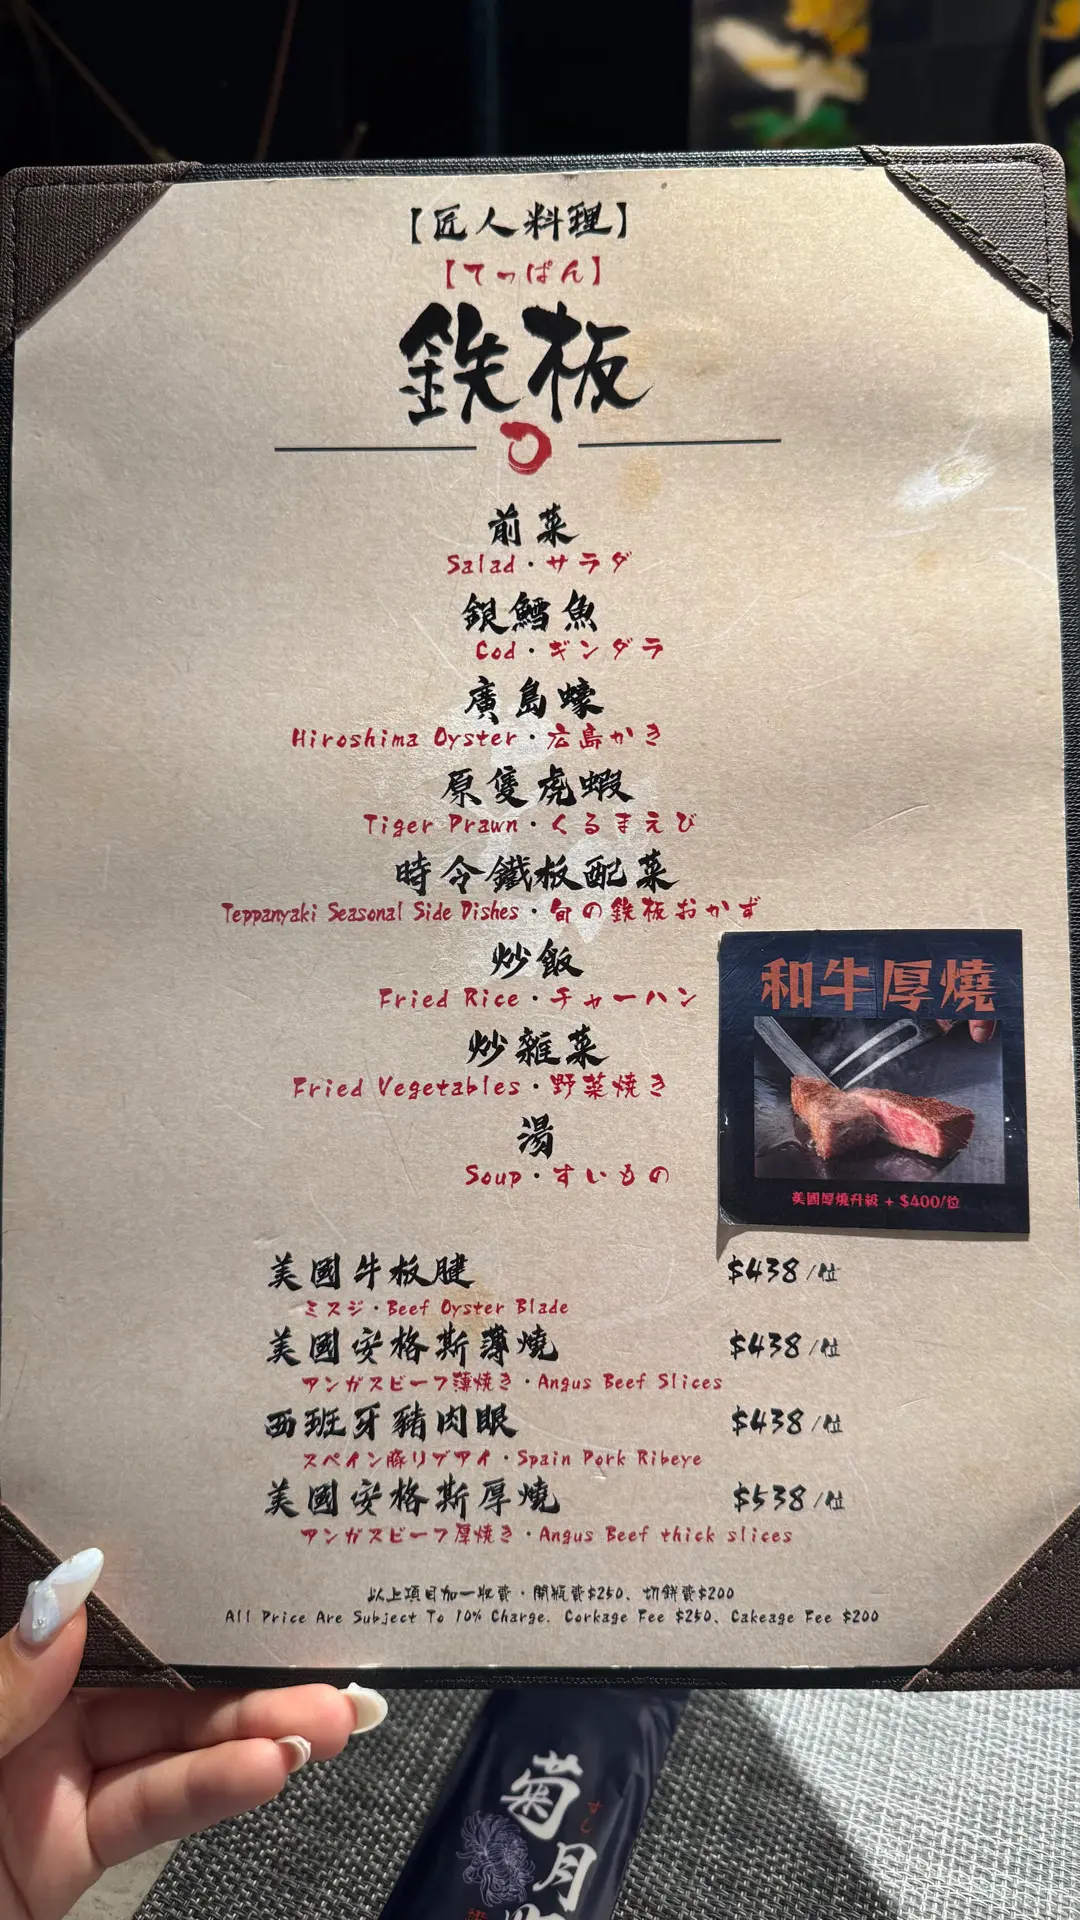 【匠人料理】
【てっぱん】
鉄板
前菜
Salad・サラダ
銀鱈魚
Cod・ギンダラ
廣島蠔
Hiroshima Oyster・広島かき
原隻虎蝦
Tiger Prawn・くるまえび
時令鐵板配菜
Teppanyaki Seasonal Side Dishes・旬の鉄板おかず
炒飯
Fried Rice・チャーハン
炒雜菜
Fried Vegetables・野菜焼き
湯
Soup・すいもの
和牛厚燒
美國厚燒升級 + $400/位
美國牛板腱 $438/位
ミスジ・Beef Oyster Blade
美國安格斯薄燒 $438/位
アンガスビーフ薄焼き・Angus Beef Slices
西班牙豬肉眼 $438/位
スペイン豚リブアイ・Spain Pork Ribeye
美國安格斯厚燒 $538/位
アンガスビーフ厚焼き・Angus Beef thick slices
以上項目加一收費・開瓶費$250、切餅費$200
All Price Are Subject To 10% Charge. Corkage Fee $250、Cakeage Fee $200
菊月
すし